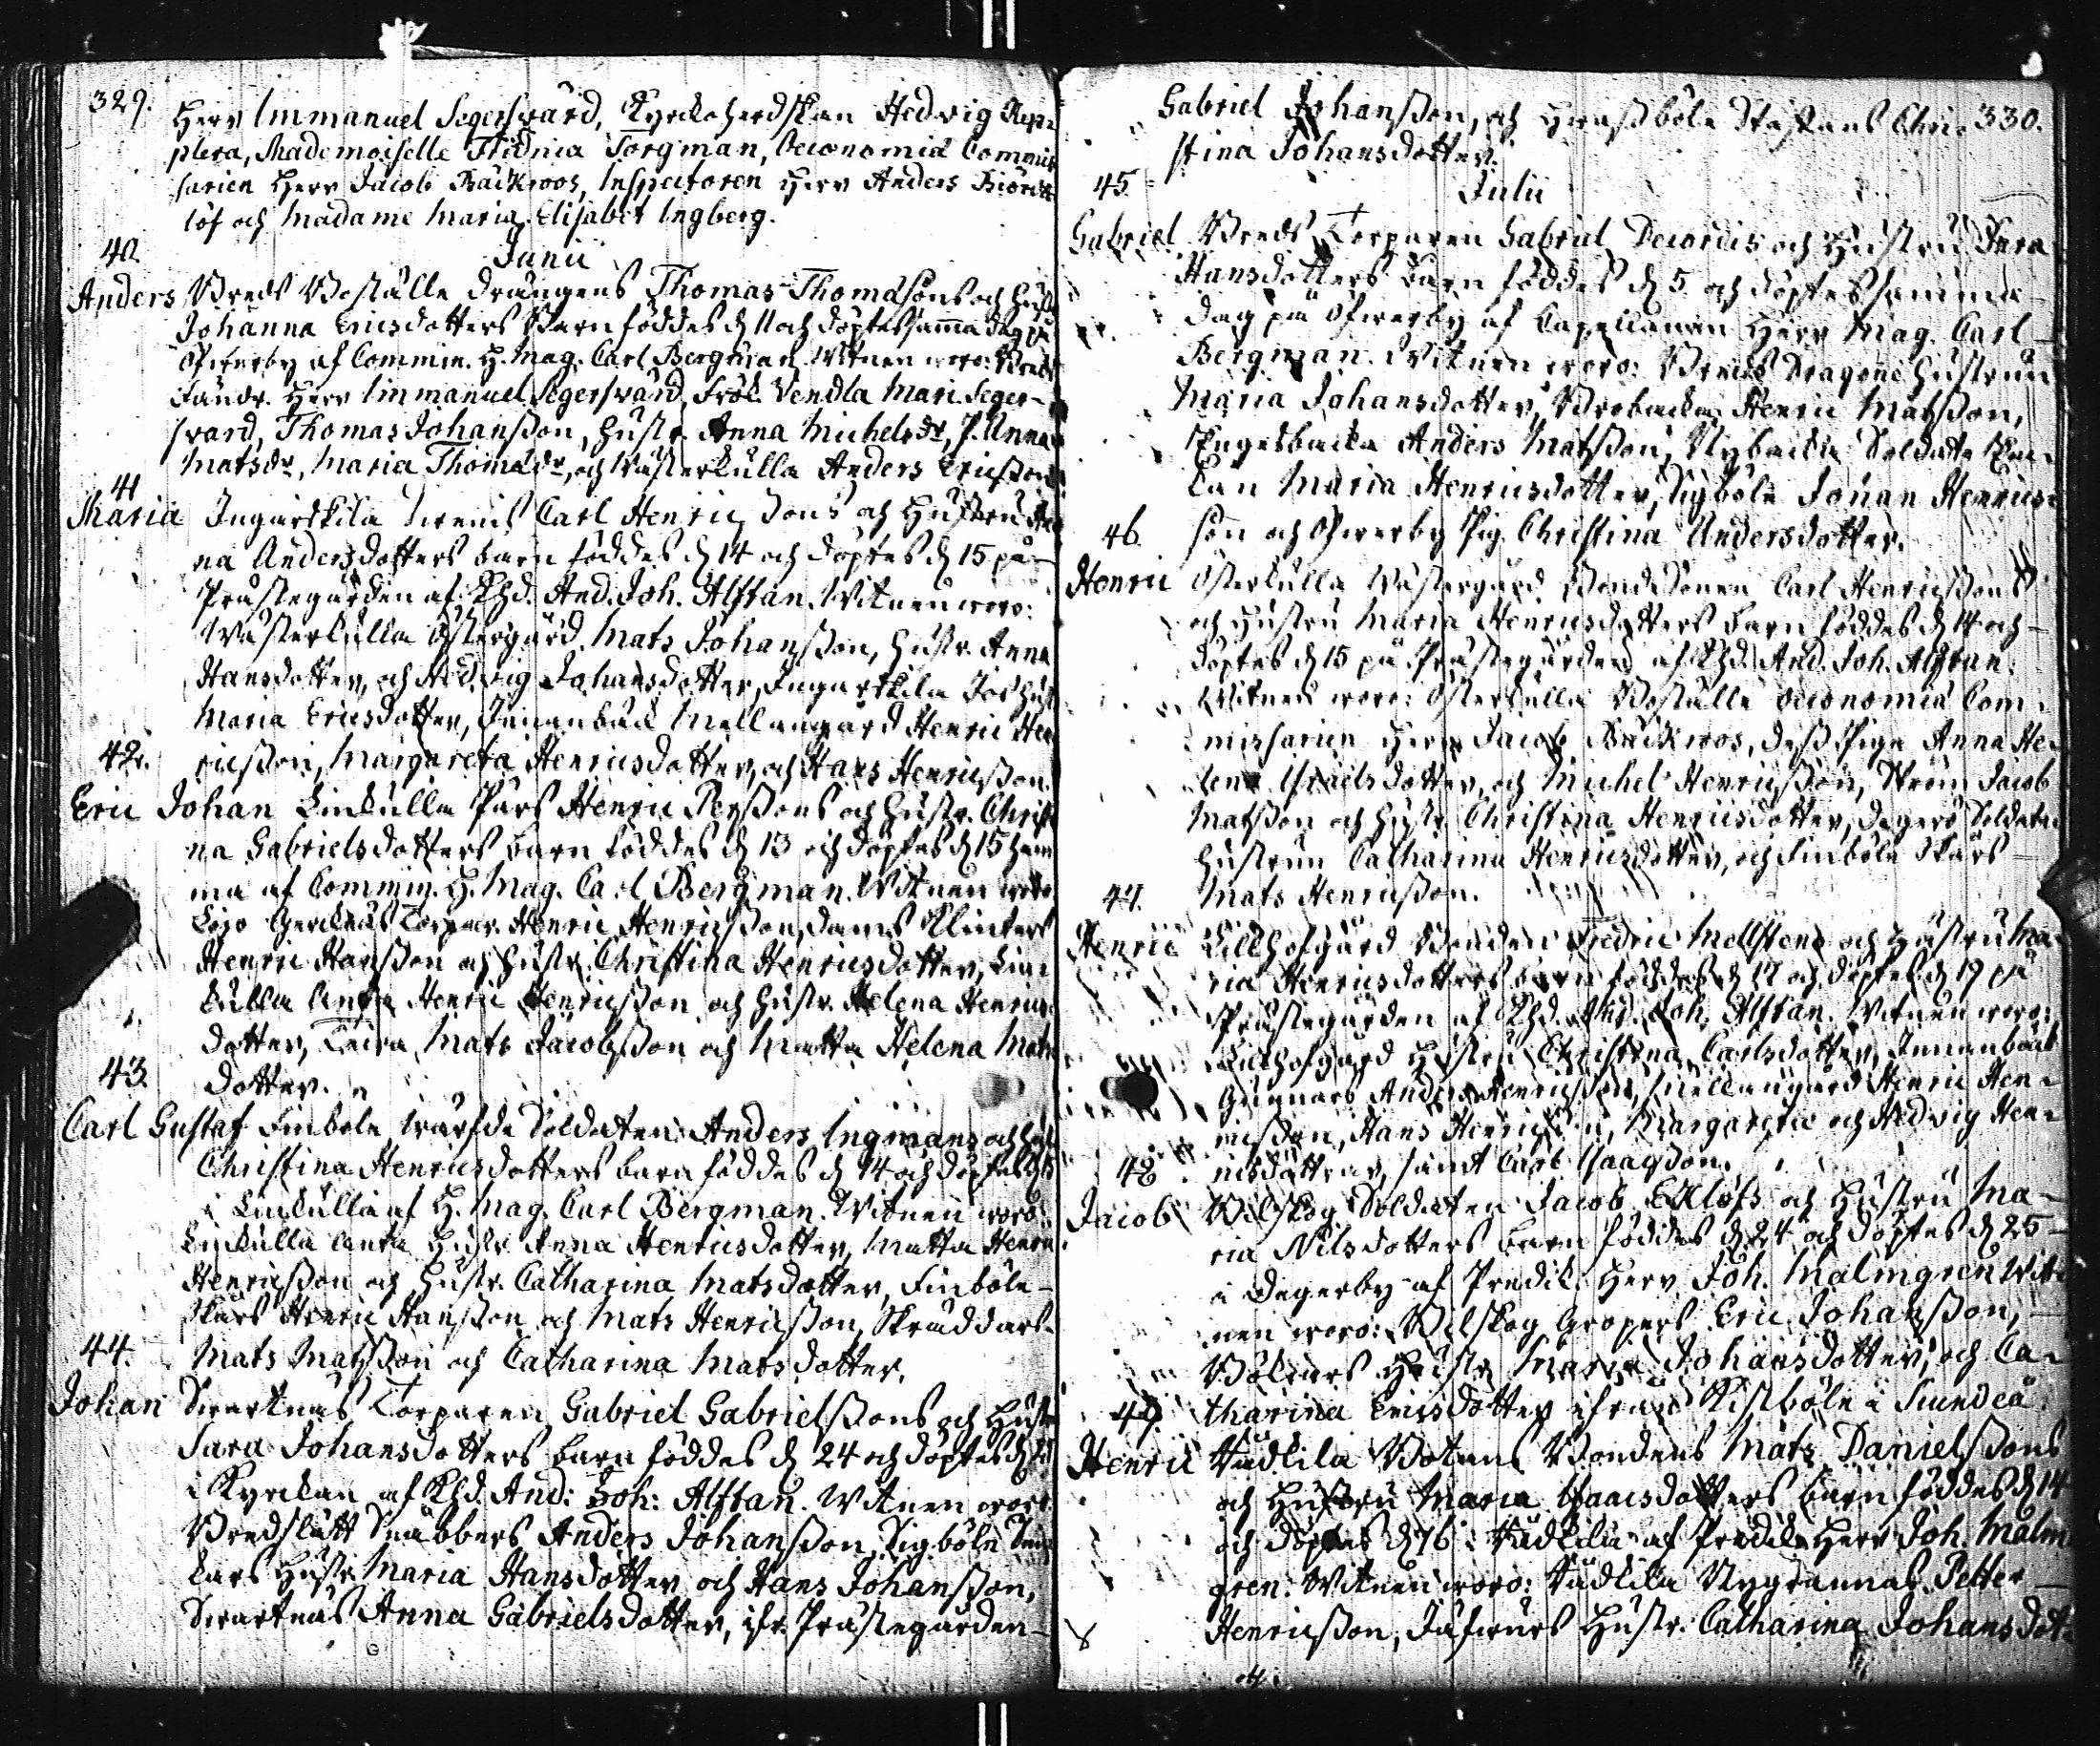 329.
Herr Immanuel Segersvärd, Kyrckoherdskan Hedvig Kep-
plera, Mademoiselle Fridrica Forgman, Oeconomiæ Commis
sarien Herr Jacob Bäckroos, Inspectoren Herr Anders Biörck
löf och Madame Maria Elisabet Ingberg.
40. Junii
Anders Breds Boställe Drängens Thomas Thomasons och Hust
Johanna Ericsdotters Barn föddes d 11 och döptes samma dag på
Öfwerby af Commin. H. Mag. Carl Bergman. Witnen woro: Breds
Fändr. Herr Immanuel Segersvärd, Frök. Vendla Mari. Seger-
svard, Thomas Johansson, Hustr. Anna Michelsdr, P. Anna
Matsdr, Maria Thomædr, och Wästerkulla Anders Ericsson
41
Maria Ingarskila Carl Henricssons och Hustru An
na Andersdotters barn föddes d 14 och döptes d 15 på
Prästegården af Khd. And. Joh. Alftan. Witnen woro:
Wästerkulla Östergård Mats Johansson, Hustr. Anna
Hansdotter, och Hedvig Johansdotter, Ingarskila Hust
Maria Ericsdotter, Innanbäck Mellangård Henric Hen
42. ricsson, Margareta Henricsdotter, och Hans Henricsson.
Eric Johan Linkulla Pärs Henric Perssons och Hustr. Christi
na Gabrielsdotters barn föddes d 13 och döptes d 15 hem
ma af Commin. H. Mag. Carl Bergman. Witnen woro
Lojo Torpar. Henric Henricsson, Klinkers
Henric Hansson och Hustr. Christina Henricsdotter, Lin-
kulla Henric Henricsson och Hustr. Helena Henrics
dotter, Mats Jacobsson och Matta Helena Mats
43. dotter.
Carl Gustaf Finböle wärfde Soldaten Anders Ingmans och Hust
Christina Henricsdotters barn föddes d 14 och döptes d 15
i Linkulla af H. Mag. Carl Bergman. Witnen woro:
Linkulla Hustr. Anna Henricsdotter, Matta Henric
Henricsson och Hustr. Catharina Matsdotter, Finböle-
Skärs Henric Hansson och Mats Henricsson, Skräddars-
44. Mats Matsson och Catharina Matsdotter.
Johan Svartnäs Torparen Gabriel Gabrielssons och Hust
Sara Johansdotters barn föddes d 24 och döptes d
i Kyrckan af Khd. And: Joh: Alftan. Witnen woro:
Bredslätt Snäbbers Anders Johansson, Sigböle
Hustr. Maria Hansdotter och Hans Johansson,
Svartnäs Anna Gabrielsdotter, ifr. Prästegården-
330.
Gabriel Johansson, och Staffans Chri-
stina Johansdotter.
45. Julii
Gabriel Breds Torparen Gabriel Decorius och Hustru
Hansdotters barn föddes d 5 och döptes samma
dag på Öfwerby af Capellanen Herr Mag. Carl
Bergman. Witnen woro: Breds Dragone Hustrun
Maria Johansdotter, Henric Matsson,
Anders Matsson, Nybacka Soldate
Maria Henricsdotter, Sigböle Johan Henrics-
46. son och Öfwerby Pig. Christina Andersdotter.
Henric Österkulla Wästergård Bonde Sonen Carl Henricssons
och Hustru Maria Henricsdotters barn föddes d 14 och
döptes d 15 på Prästegården af Khd. And. Joh. Alftan.
Witnen woro: Österkulla Boställe Oeconomiæ Com-
missarien Herr Jacob Bäckroos, dess Piga Anna He-
lena Israelsdotter, och Michel Henricsson, Ström Jacob
Matsson och Hustr. Christina Henricsdotter, Degerö Soldate
Hustrun Catharina Henricsdotter, och Finböle Skärs
47. Mats Henricsson.
Henric Lillhofgård Bonden Fredric Mellstens och Hustru Ma-
ria Henricsdotters barn föddes d 17 och döptes d 19 på
Prästegården af Khd. And. Joh. Alftan. Witnen woro:
Lillhofgård Hustru Christina Carlsdotter, Innanbäck
Gunnars Anders Henricsson, Mellangård Henric Hen-
ricsson, Hans Henricsson, Margareta och Hedvig Hen-
48. ricsdöttrar, samt Carl Isaacsson.
Jacob Wilskog Soldaten Jacob Eklöfs och Hustru Ma-
ria Nilsdotters barn föddes d 24 och döptes d 25
i Degerby af Predik. Herr Joh. Malmgren Witt-
nen woro: Wilskog Gropers Eric Johansson,
Hustr. Maria Johansdotter, och Ca-
49. tharina Ericsdotter ifrån Kistböle i Siundeå
Henric Wadkila Botans Bondens Mats Danielssons
och Hustru Maria Isaacsdotters barn föddes d 14
och döptes d 16 i Wadkila af Predik. Herr Joh. Malm
gren. Witnen woro: Wadkila Nygrannas Petter
Henricsson, Hustr. Catharina Johansdot-